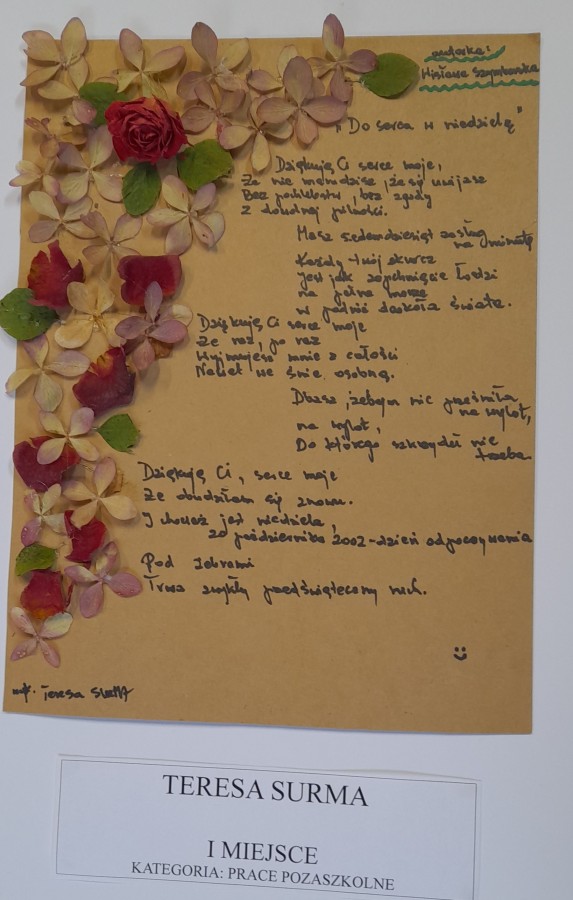 autorka:
Wisława Szymborska
"Do serca w niedzielę"
Dziękuję Ci serce moje,
Że nie marudzisz, że się uwijasz
Bez pochlebstw, bez zgody
Z dowolnej pilności.
Masz siedemdziesiąt zasług
na minutę
Każdy twój skurcz
jest jak zepchnięcie Łodzi
na pełne morze
w podróż dookoła świata.
Dziękuję Ci serce moje
Że raz, po raz
Wyjmujesz mnie z całości
Nawet we śnie osobną.
Dbasz, żebym nie prześniła
na wylot,
na wylot,
Do którego skrzydeł nie
trzeba.
Dziękuję Ci, serce moje
Że obudziłam się znowu.
I chociaż jest niedziela,
20 października 2002 - dzień odpoczywania
Pod żebrami
Trwa zwykły przedświąteczny ruch.
Teresa SURMA
TERESA SURMA
I MIEJSCE
KATEGORIA: PRACE POZASZKOLNE